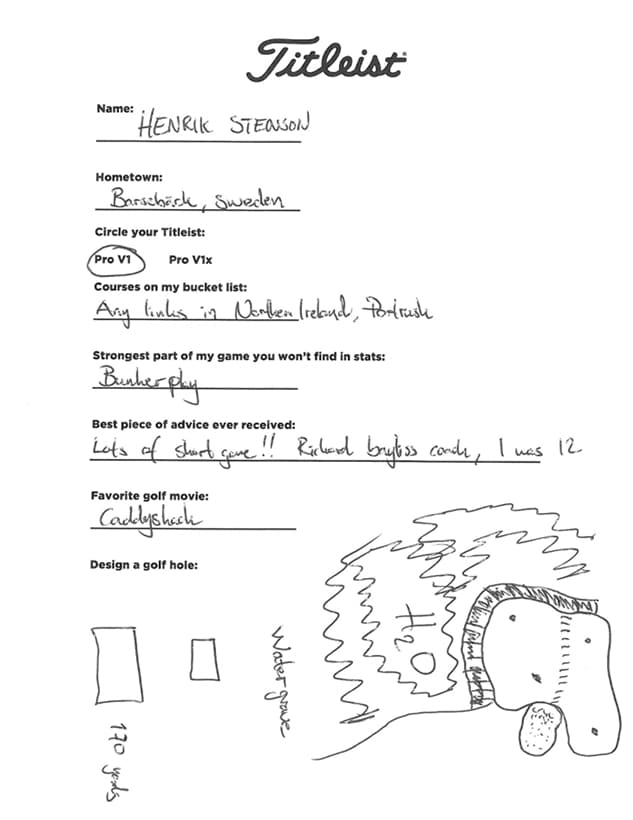 Titleist
Name:
HENRIK STENSON
Hometown:
Barsebäck, Sweden
Circle your Titleist:
Pro V1 Pro V1x
Courses on my bucket list:
Any links in Northern Ireland, Portrush
Strongest part of my game you won't find in stats:
Bunker play
Best piece of advice ever received:
Lots of short game!! Richard bayliss coach, I was 12
Favorite golf movie:
Caddyshack
Design a golf hole:
H2O
170 yards